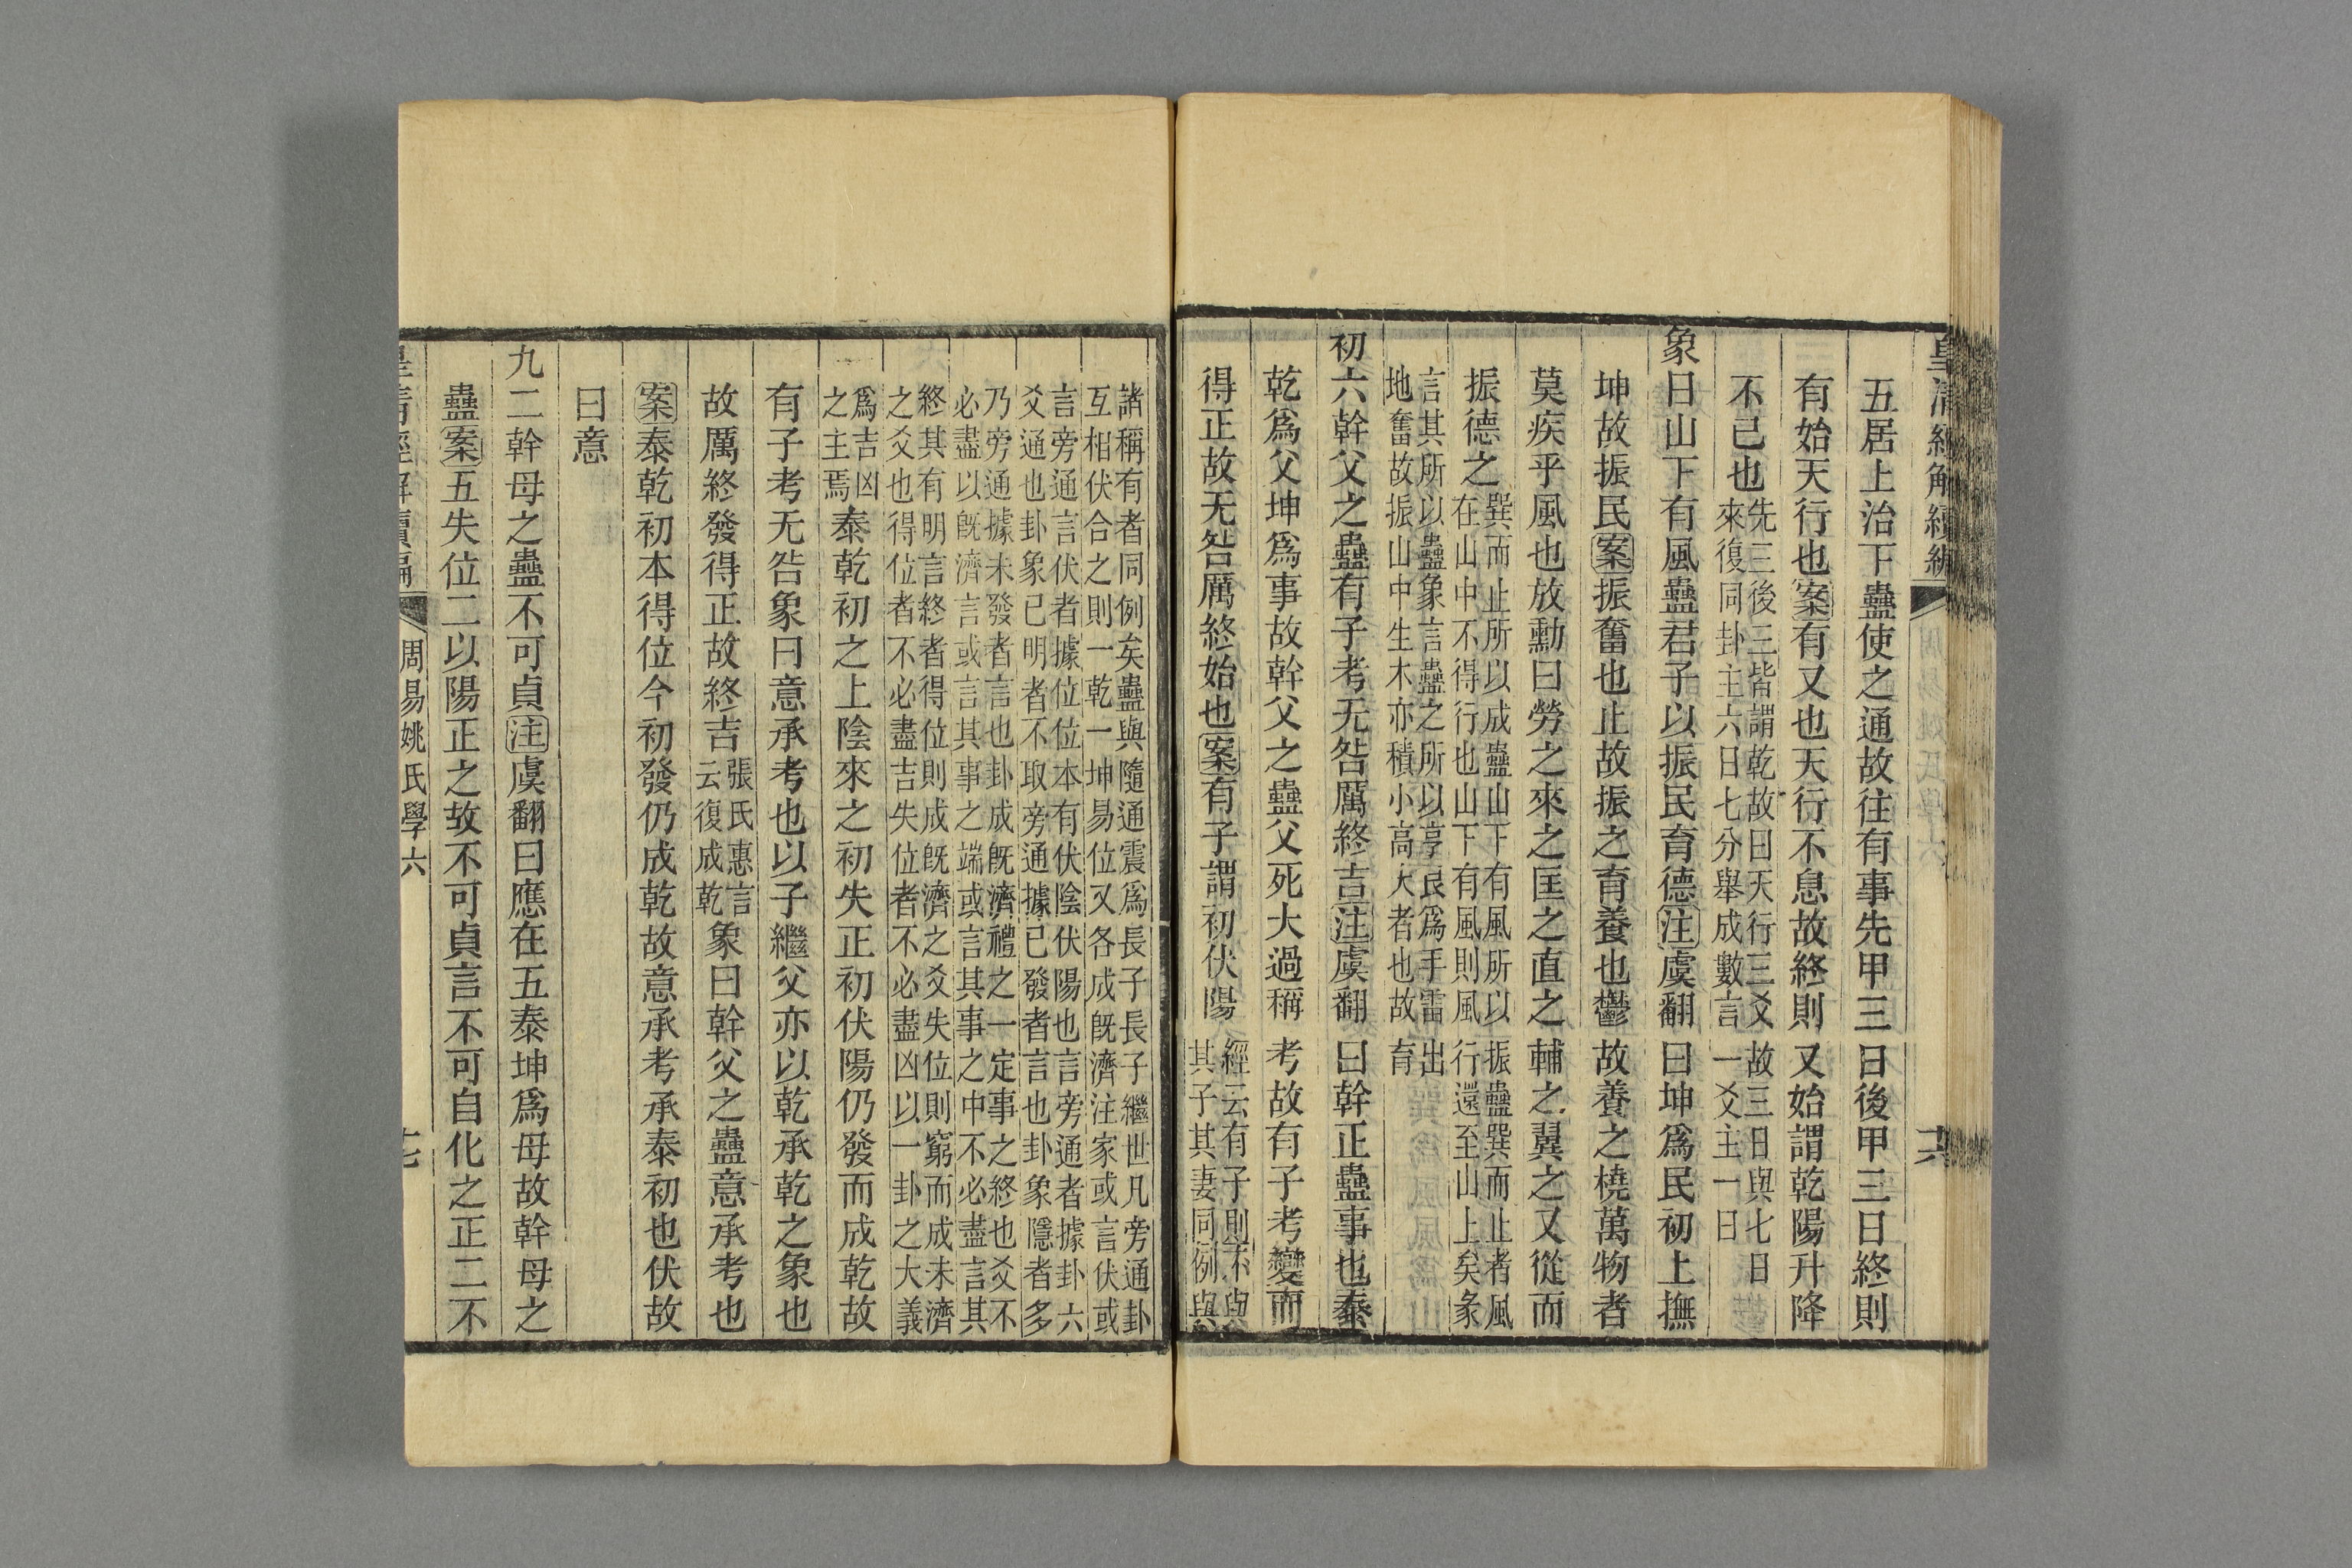 皇清經解續編
六
五居上治下蠱使之通故往有事先甲三日後甲三日終則
有始天行也案有又也天行不息故終則又始謂乾陽升降
不已也先三後三皆謂乾故曰天行三爻故三日與七日
來復同卦主六日七分舉成數言一爻主一日
象曰山下有風蠱君子以振民育德注虞翻曰坤爲民初上撫
坤故振民案振奮也止故振之育養也鬱故養之橈萬物者
莫疾乎風也放勳曰勞之來之匡之直之輔之翼之又從而
振德之巽而止所以成蠱山下有風所以振蠱巽而止者風
在山中不得行也山下有風則風行還至山上矣彖
言其所以蠱象言蠱之所以亨艮爲手雷出
地奮故振山中生木亦積小高大者也故育
初六幹父之蠱有子考无咎厲終吉注虞翻曰幹正蠱事也泰
乾爲父坤爲事故幹父之蠱父死大過稱考故有子考變而
得正故无咎厲終始也案有子謂初伏陽經云有子則不與
其子其妻同例與
諸稱有者同例矣蠱與隨通震爲長子長子繼世凡旁通卦
互相伏合之則一乾一坤易位又各成旣濟注家或言伏或
言旁通言伏者據位位本有伏陰伏陽也言旁通者據卦六
爻通也卦象已明者不取旁通據已發者言也卦象隱者多
乃旁通據未發者言也卦成旣濟禮之一定事之終也爻不
必盡以旣濟言或言其事之端或言其事之中不必盡言其
終其有明言終者得位則成旣濟之爻失位則窮而成未濟
之爻也得位者不必盡吉失位者不必盡凶以一卦之大義
爲吉凶
之主焉泰乾初之上陰來之初失正初伏陽仍發而成乾故
有子考无咎象曰意承考也以子繼父亦以乾承乾之象也
故厲終發得正故終吉張氏惠言
云復成乾象曰幹父之蠱意承考也
案泰乾初本得位今初發仍成乾故意承考承泰初也伏故
曰意
九二幹母之蠱不可貞注虞翻曰應在五泰坤爲母故幹母之
蠱案五失位二以陽正之故不可貞言不可自化之正二不
皇清經解續編
周易姚氏學六
十七